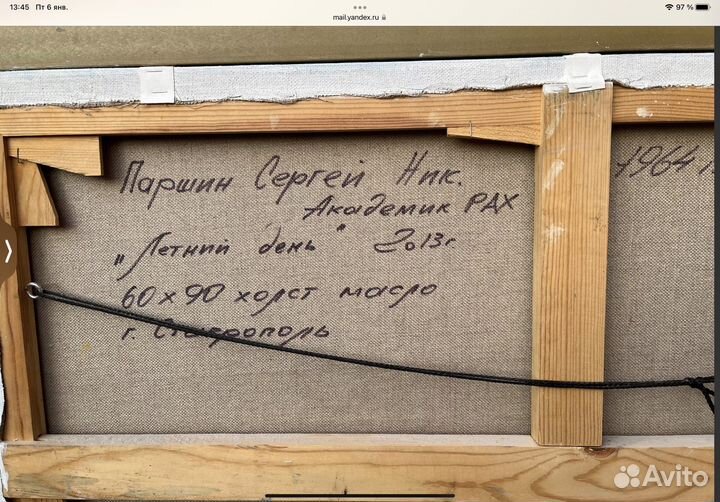 13:45 Пт 6 янв.
mail.yandex.ru
97 %
Паршин Сергей Ник. 1964 г.
Академик РАХ
„Летний день" 2013г
60х90 холст масло
г. Ставрополь
Avito